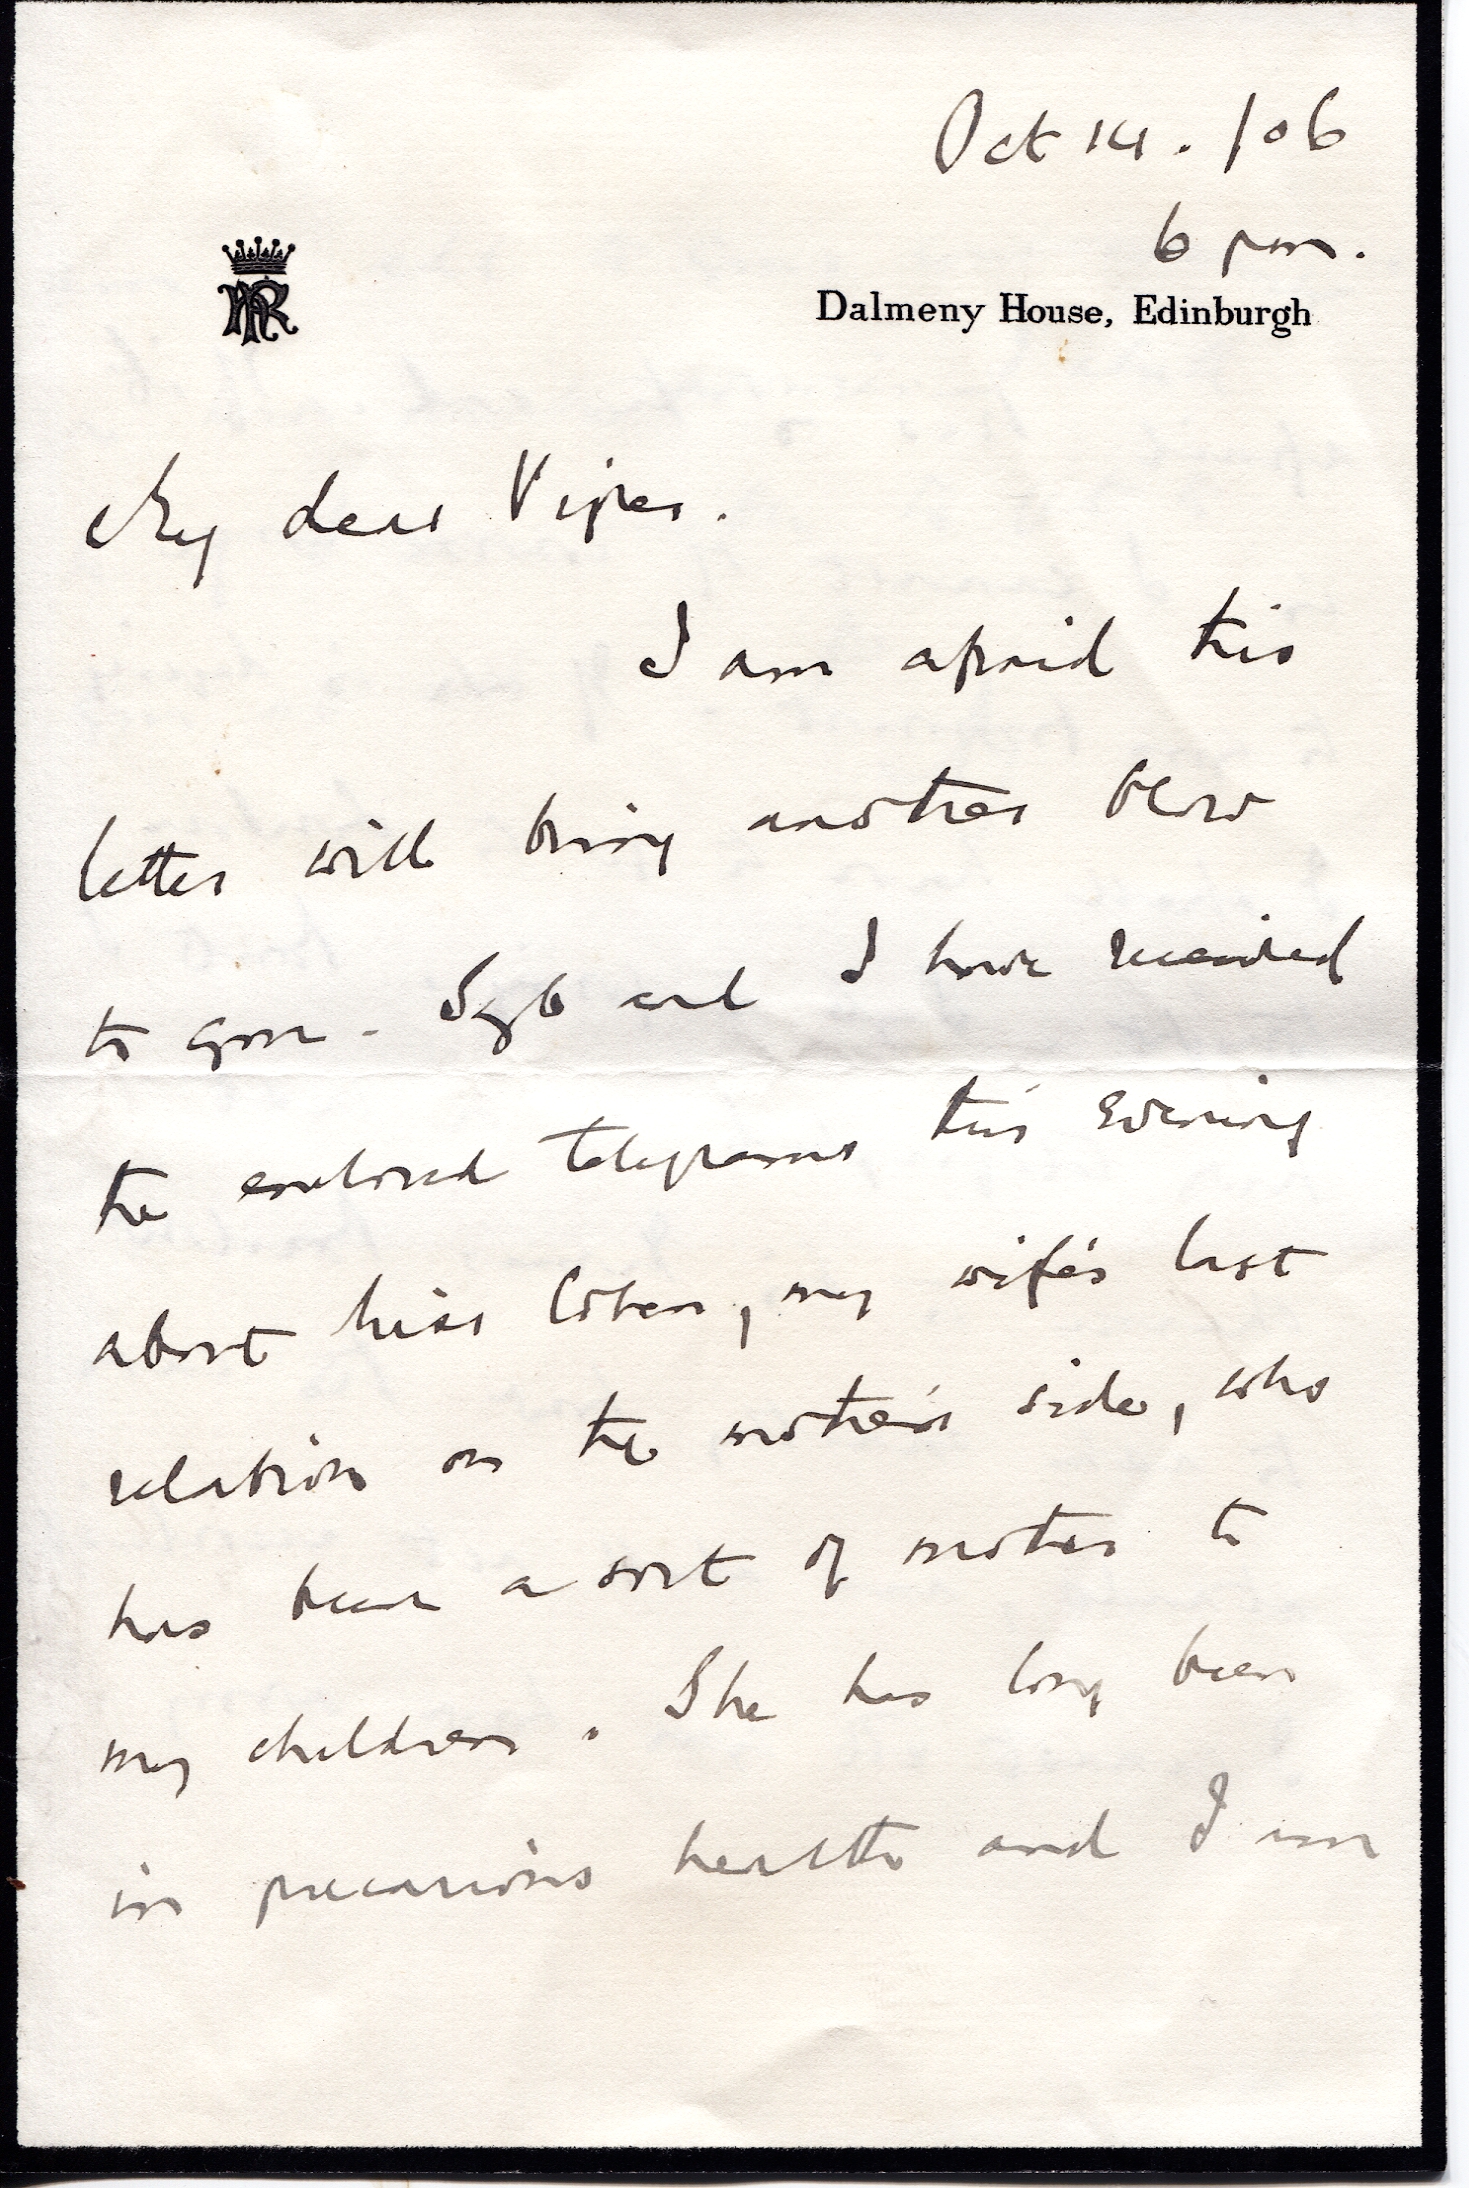 Oct 14. /06
6 pm.
AR
Dalmeny House, Edinburgh
My dear Vipes.
I am afraid this
letter will bring another blow
to you. Syb and I have received
the enclosed telegrams this evening
about Miss Cohen, my wife's last
relation on the mother's side, who
has been a sort of mother to
my children. She has long been
in precarious health and I am